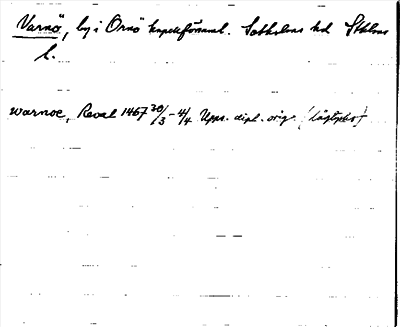 Varnö, by i Ornö kapellförsaml. Sotholms hd Sthlms
l.
Warnoe, Reval 1467 30/3 - 4/4 Upps. dipl. orig. (lågtyska)